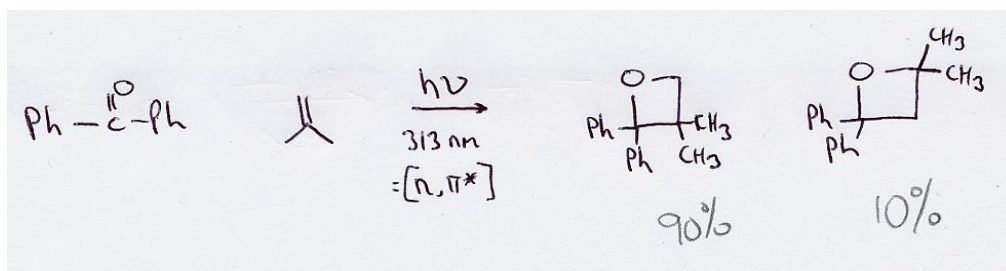 O
Ph-C-Ph
hν
313 nm
=[n,π*]
O
Ph
Ph
CH3
CH3
90%
O
CH3
CH3
Ph
Ph
10%